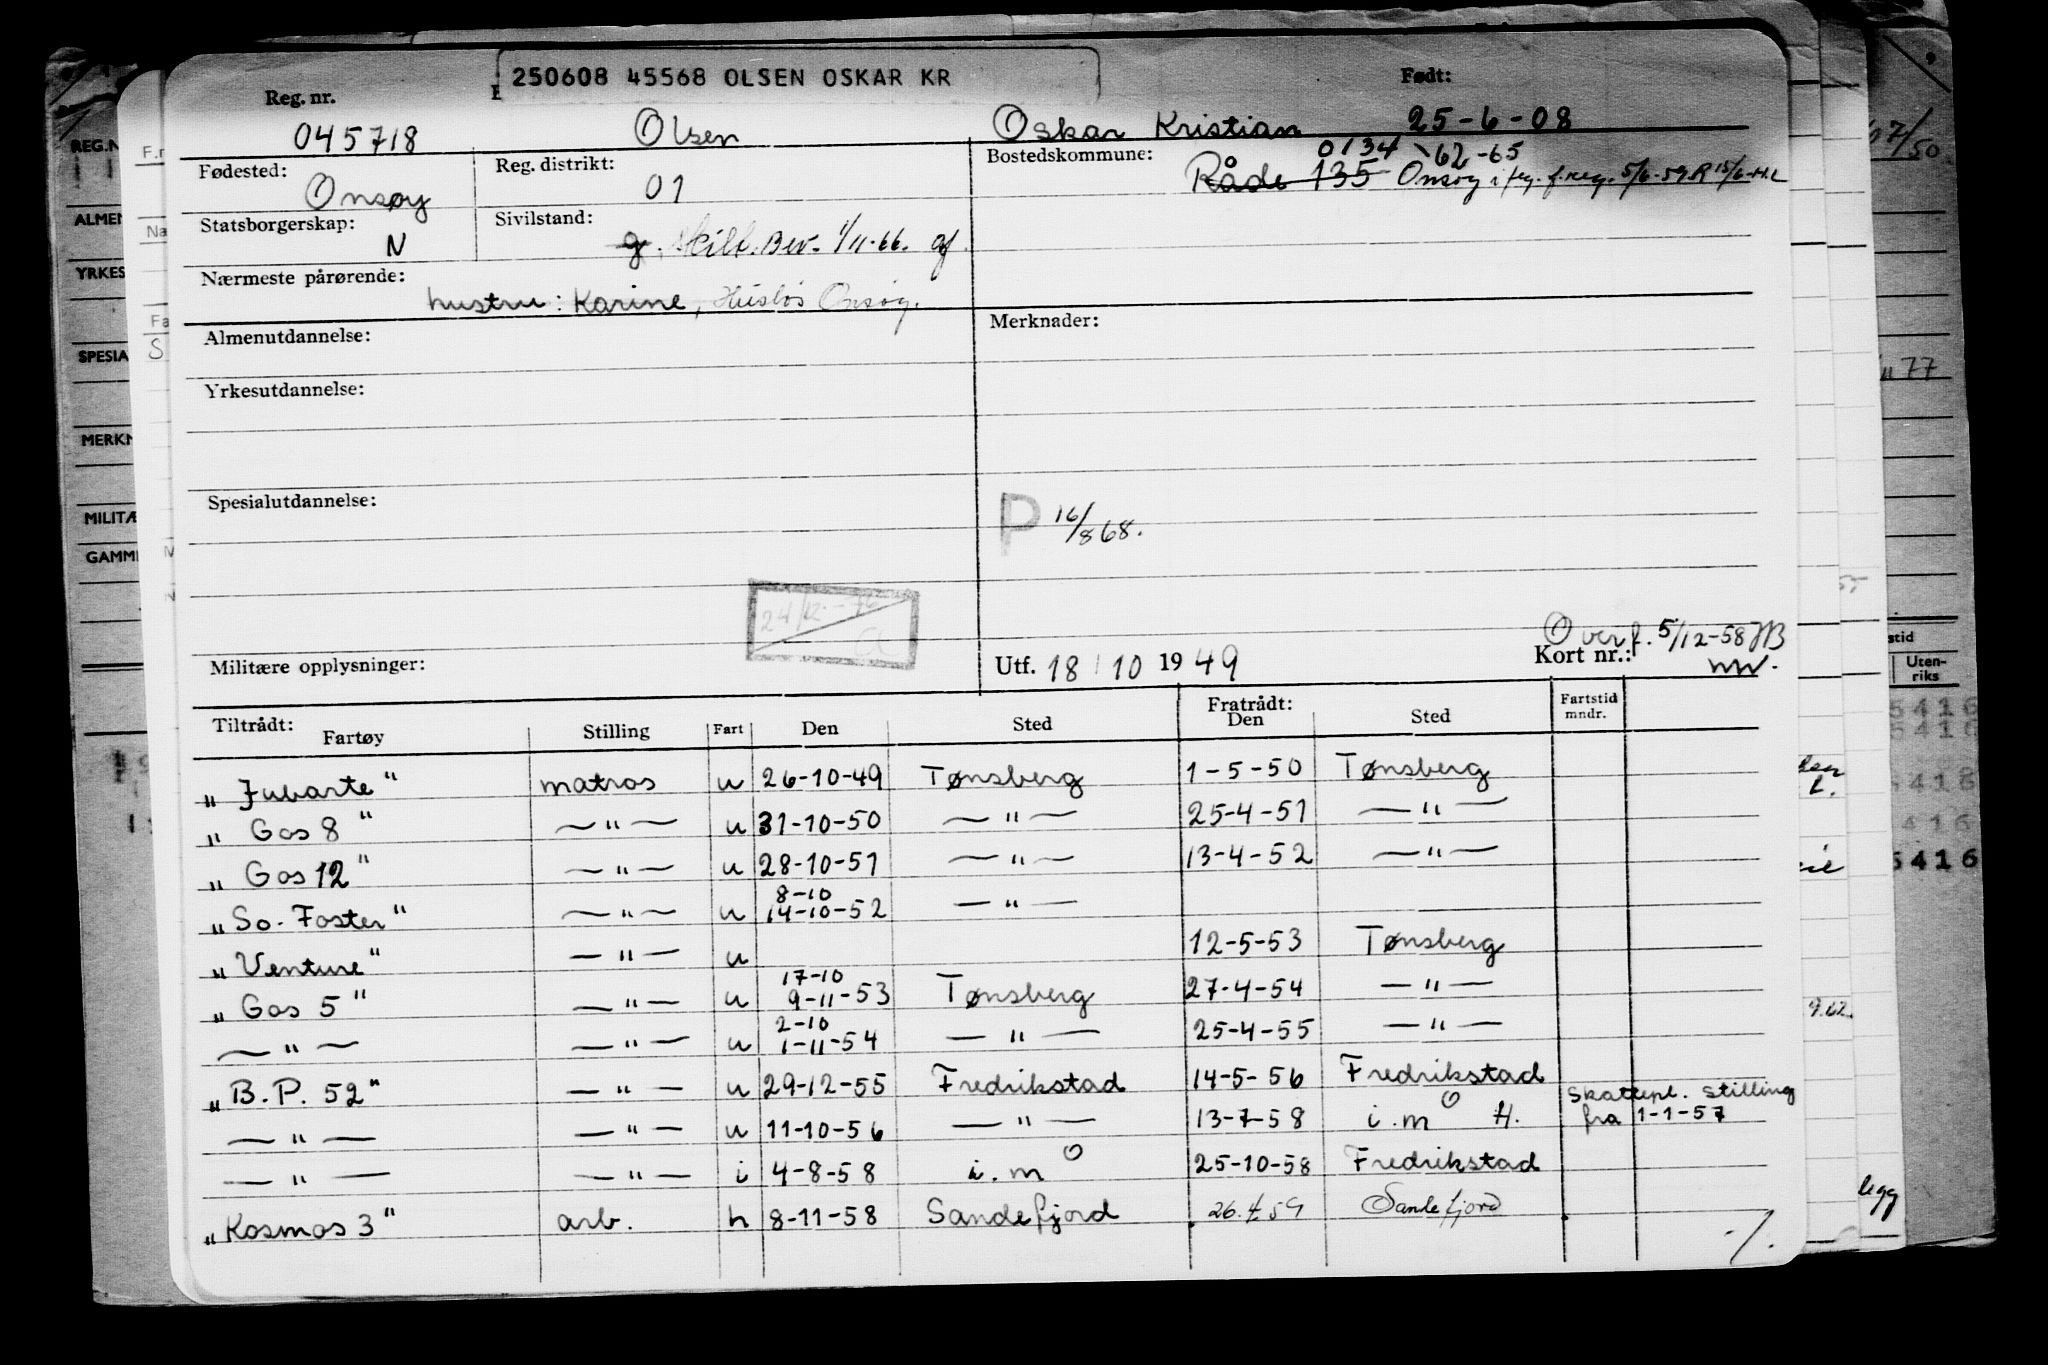 250608 45568 OLSEN OSKAR KR
Reg. nr. Født:
045718 Olsen Oskar Kristian 25-6-08
Fødested: Reg. distrikt: Bostedskommune: 0134 '62-65
Onsøy 01 Råde 135 Onsøy i flg. f.reg. 5/6-59
Statsborgerskap: Sivilstand:
N g. skilt. Bev. 1/11-66.
Nærmeste pårørende:
hustru: Karine, Husløs Onsøy.
Almenutdannelse: Merknader:
Yrkesutdannelse:
Spesialutdannelse:
P 16/8 68.
24/12-76
Overf. 5/12-58 HB
Militære opplysninger: Utf. 18/10 1949 Kort nr.:
Tiltrådt: Fartøy Stilling Fart Den Sted Fratrådt: Den Sted Fartstid mndr.
"Jubarte" matros u 26-10-49 Tønsberg 1-5-50 Tønsberg
"Gos 8" — " — u 31-10-50 — " — 25-4-51 — " —
"Gos 12" — " — u 28-10-51 — " — 13-4-52 — " —
8-10
"So. Foster" — " — u 14-10-52 — " —
"Venture" — " — u 12-5-53 Tønsberg
17-10
"Gos 5" — " — u 9-11-53 Tønsberg 27-4-54 — " —
2-10
— " — — " — u 1-11-54 — " — 25-4-55 — " —
"B.P. 52" — " — u 29-12-55 Fredrikstad 14-5-56 Fredrikstad
Skattepl. stilling
— " — — " — u 11-10-56 — " — 13-7-58 i.m O H. fra 1-1-57
— " — — " — i 4-8-58 i.m O 25-10-58 Fredrikstad
"Kosmos 3" arb. h 8-11-58 Sandefjord 26.4.59 Sandefjord
./.
REG.N
ALMEN
YRKES
SPESIA
MERKN
MILITÆ
GAMME
F.n
Na
Fa
S
07/50
77
9.62.
stid
Uten-
riks
5416
5416
5416
416
5416
legg